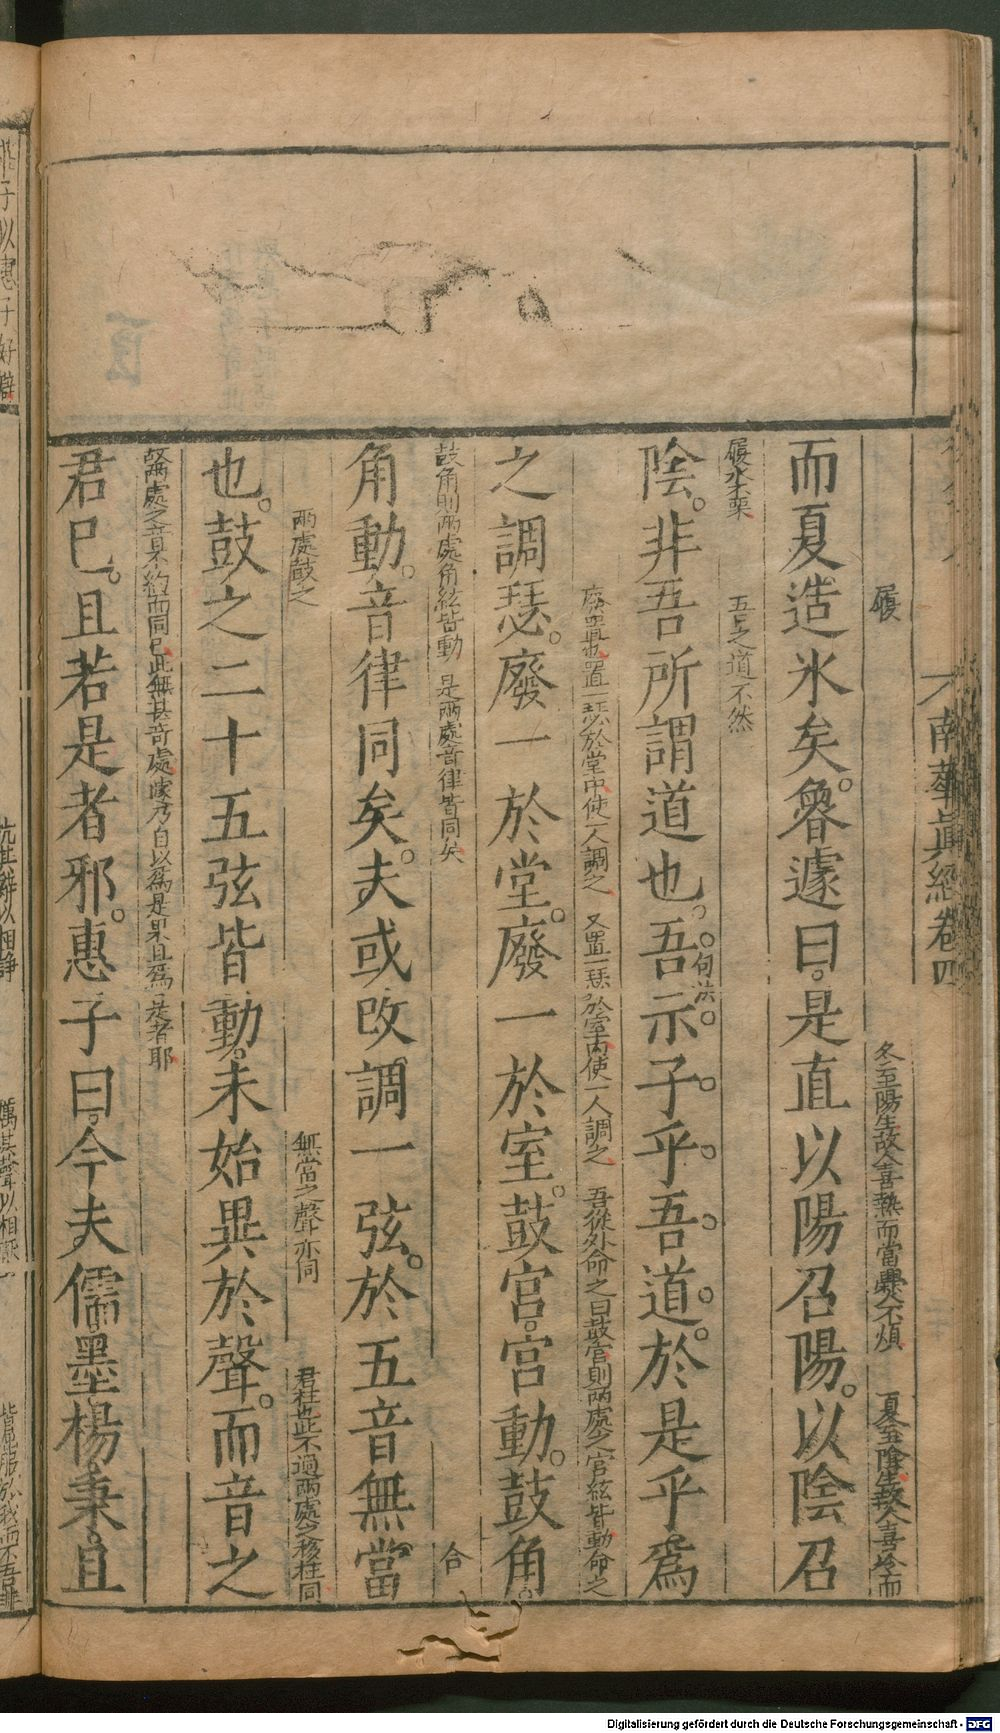 南華真經卷四
履
冬至陽生故人喜熱而當爨不煩
夏至陰生故人喜冷而
而夏造氷矣魯遽曰是直以陽召陽以陰召
履氷不栗
吾之道不然
陰非吾所謂道也吾示子乎吾道於是乎爲
廢置也置一瑟於堂中使一人調之
又置一瑟於室内使一人調之
吾從外命之曰鼓宮則兩處之宮絃皆動命之
之調瑟廢一於堂廢一於室鼓宮宮動鼓角
鼓角則兩處角絃皆動
是兩處音律皆同矣
合
角動音律同矣夫或改調一弦於五音無當
兩處鼓之
無當之聲亦同
君柱也此不過兩處之移柱同
也鼓之二十五弦皆動未始異於聲而音之
故兩處之音不約而同已此無甚奇處
遽乃自以爲是果且爲是者耶
君已且若是者邪惠子曰今夫儒墨楊秉且
Digitalisierung gefördert durch die Deutsche Forschungsgemeinschaft - DFG